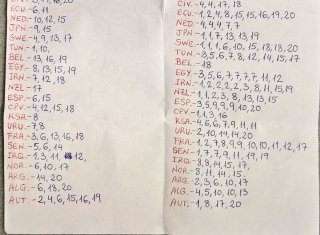 ECU.-6,11
NED.-10,12,15
JPN.-9,15
SWE.-4,9,13,17
TUN.-1,10,
BEL.-13,16,19
EGY.-8,13,15,19
IRN.-7,12,18
NZL.-17
ESP.-6,15
CPV.-4,12,15,18
KSA.-8
URU.-7,8
FRA.-3,6,13,16,18
SEN.-5,6,14
IRQ.-1,3,11, 12,
NOR.-6,10,17
ARG.-14,20
ALG.-6,18,20
AUT.-2,4,6,15,16,19
CIV.-4,4,17,18
ECU.-1,2,4,8,15,15,16,19,20
NED.-4,4,7,7
JPN.-1,1,7,13,13,19
SWE.-1,1,1,6,10,15,18,18,20
TUN.-3,5,6,7,8,12,14,15,17
BEL.-18
EGY.-3,5,6,7,7,7,7,11,12
IRN.-1,2,2,2,2,3,8,11,15,19
NZL.-1,1,2,3,8,13,13,15
ESP.-3,5,9,9,9,10,20
CPV.-1,1,3,16
KSA.-4,6,6,7,9,11,11
URU.-2,10,11,14,20
FRA.-1,2,7,8,9,9,10,10,11,12,17
SEN.-1,7,7,9,11,19,19
IRQ.-8,8,14,15,17
NOR.-8,11,14,15
ARG.-2,3,6,10,17
ALG.-4,5,10,10,13
AUT.-1,8,17,20